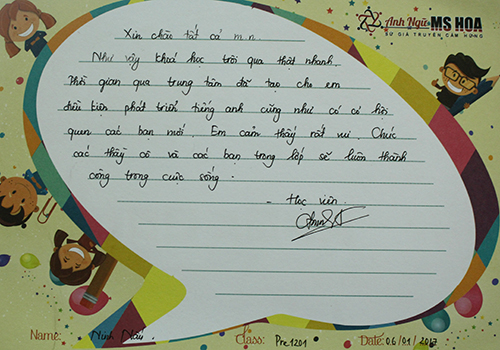 Anh Ngữ MS HOA
SỨ GIẢ TRUYỀN CẢM HỨNG
Xin chào tất cả m.n.
Như vậy khoá học trôi qua thật nhanh.
Thời gian qua trung tâm đã tạo cho em
điều kiện phát triển tiếng anh cũng như có cơ hội
quen các bạn mới. Em cảm thấy rất vui. Chúc
các thầy cô và các bạn trong lớp sẽ luôn thành
công trong cuộc sống.
- Học viên
Name: Ninh
Class: Pre1201
Date: 06/01/2017